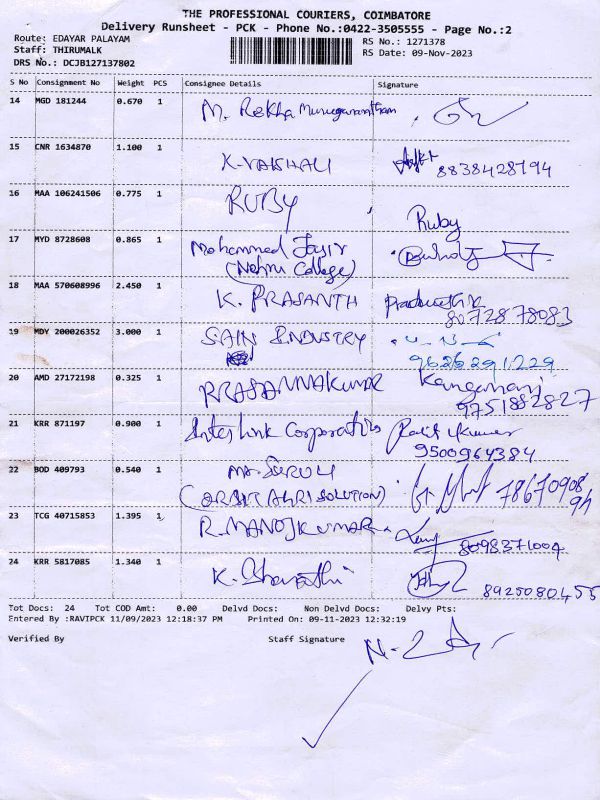 THE PROFESSIONAL COURIERS, COIMBATORE
Delivery Runsheet - PCK - Phone No.:0422-3505555 - Page No.:2
Route: EDAYAR PALAYAM
RS No.: 1271378
Staff: THIRUMALK
RS Date: 09-Nov-2023
DRS No.: DCJB127137802
S No Consignment No Weight PCS Consignee Details Signature
14 MGD 181244 0.670 1 M. Rekha Muruganantham
15 CNR 1634870 1.100 1 K. VAISHALI 8838428194
16 MAA 106241506 0.775 1 RUBY Ruby
17 MYD 8728608 0.865 1 Mohammed Jasir
(Nehru College)
18 MAA 570608996 2.450 1 K. PRASANTH
8072878083
19 MDY 200026352 3.000 1 SAIN INDUSTRY
9626291229
20 AMD 27172198 0.325 1 PRASANNAKUMAR
9751882827
21 KRR 871197 0.900 1 Inter Link Corporation
9500964384
22 BOD 409793 0.540 1
(ORBIT AGRI SOLUTION) 7867090894
23 TCG 40715853 1.395 1 R. MANOJKUMAR 8098371004
24 KRR 5817085 1.340 1 K. Bharathi 8925080455
Tot Docs: 24 Tot COD Amt: 0.00 Delvd Docs: Non Delvd Docs: Delvy Pts:
Entered By :RAVIPCK 11/09/2023 12:18:37 PM Printed On: 09-11-2023 12:32:19
Verified By Staff Signature